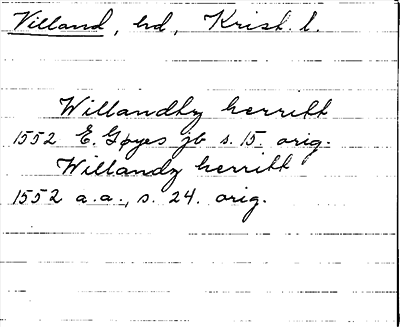 Villand, hd, Krist. l.
Willandtz herritt
1552 E. Gøyes jb s. 15. orig.
Willandz herritt
1552 a.a., s. 24. orig.